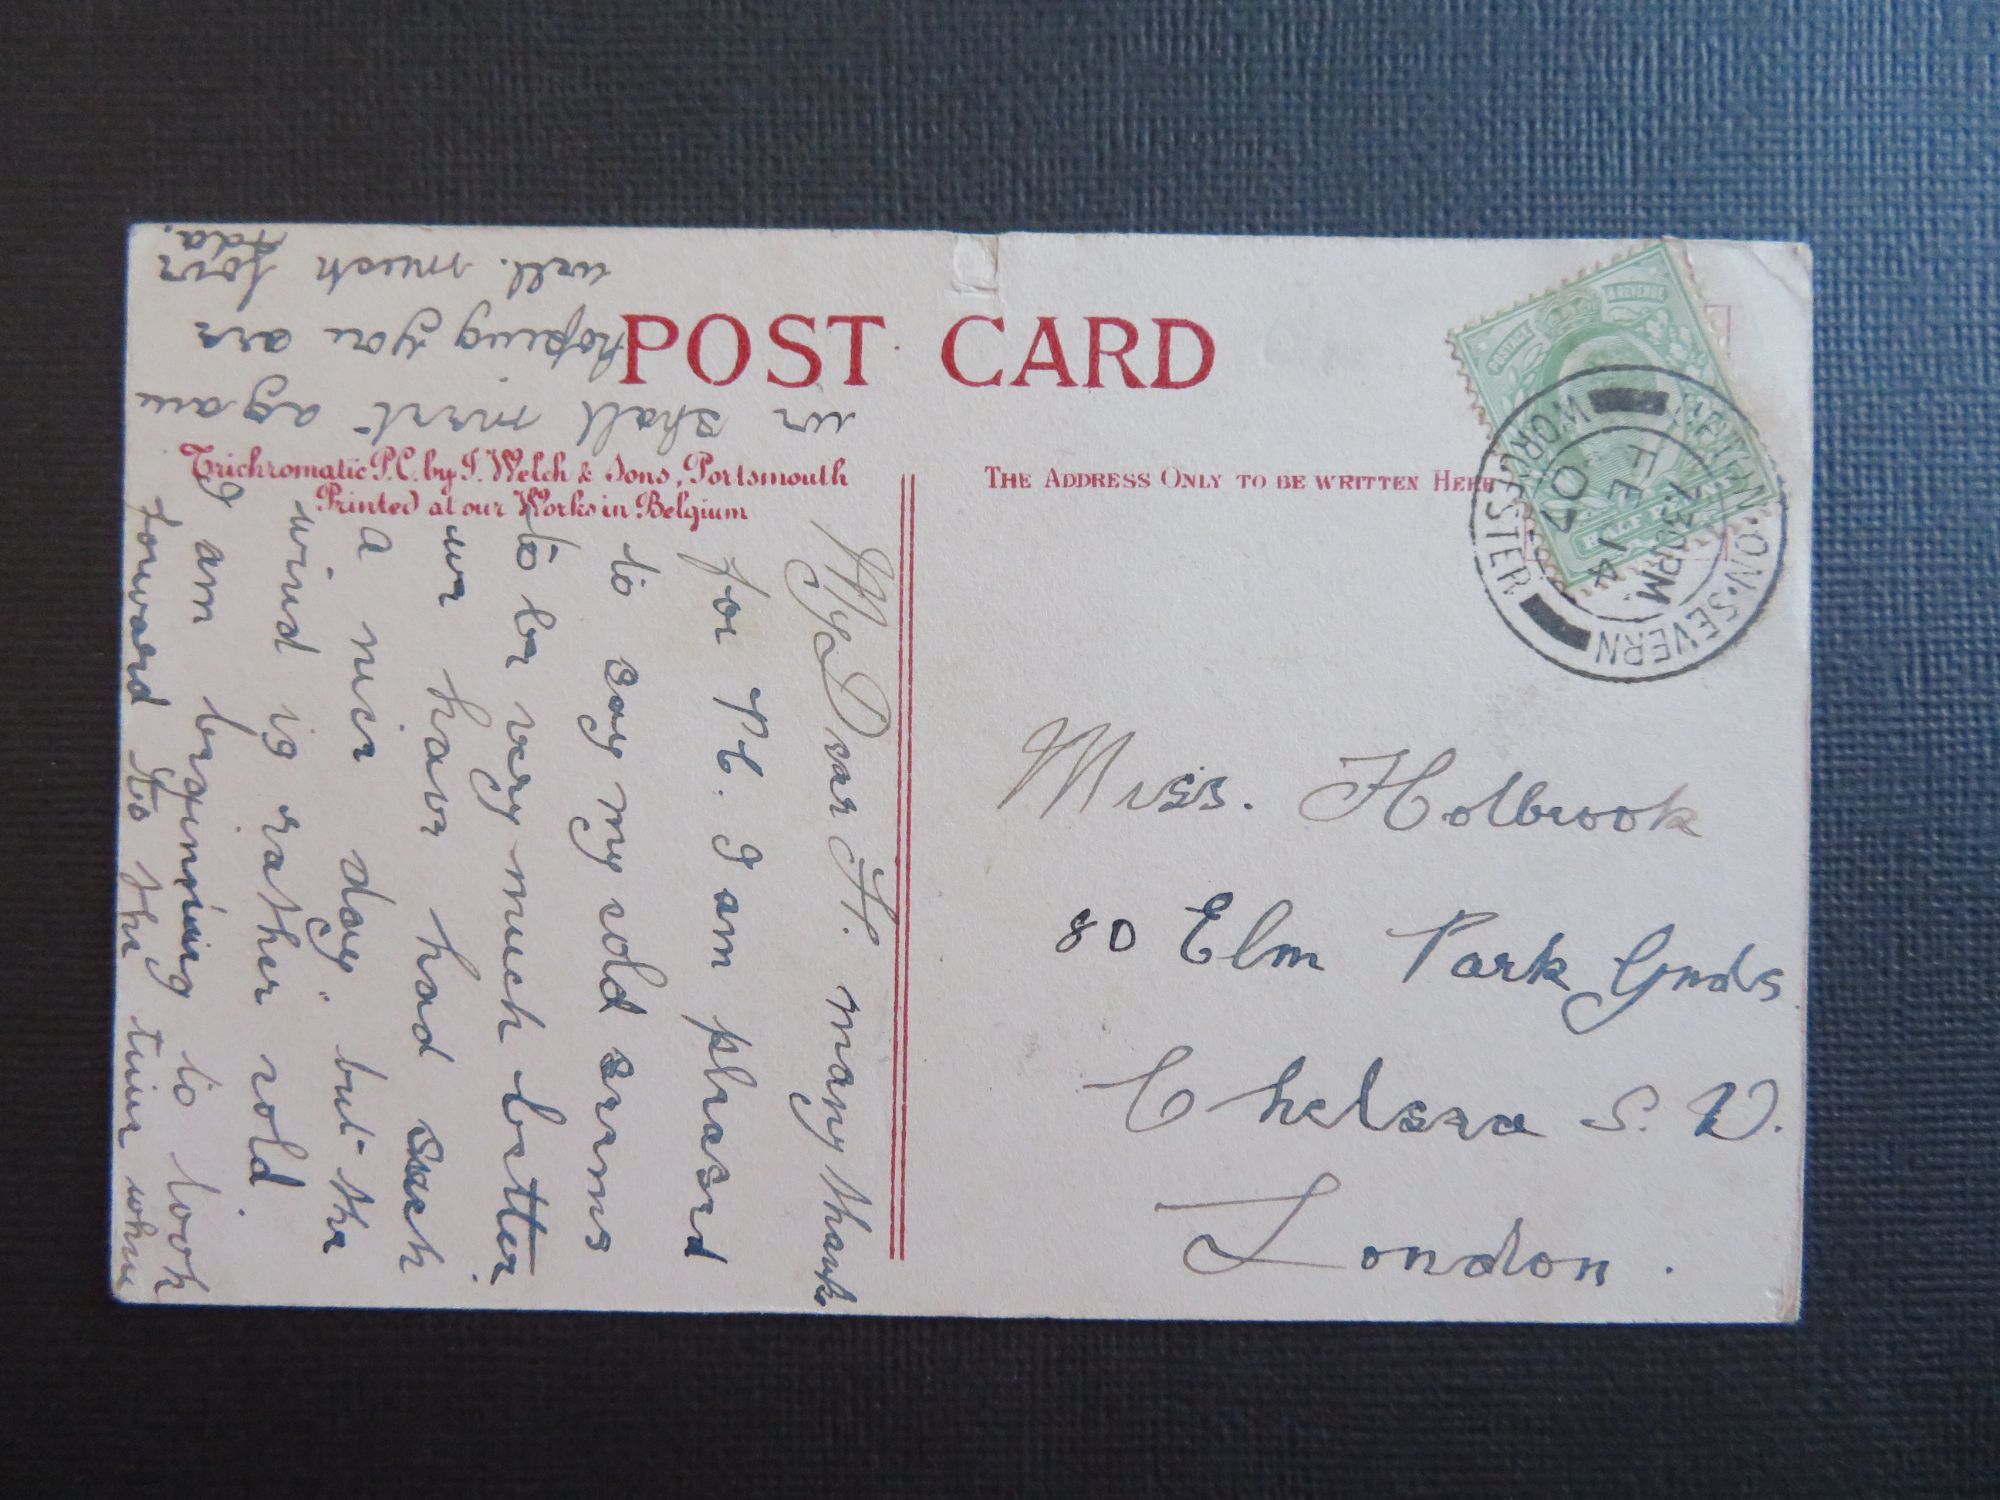 POST CARD
Trichromatic P.C. by J. Welch & Sons, Portsmouth
Printed at our Works in Belgium
THE ADDRESS ONLY TO BE WRITTEN HERE
POSTAGE
REVENUE
HALF PENNY
NEWLAND·ON·SEVERN
WORCESTER
1.30PM
FE 14
07
Miss. Holbrook
80 Elm Park Gnds
Chelsea S. W.
London.
My Dear H. many thanks
for P.C. I am pleased
to say my cold seems
to be very much better
we have had such
a nice day" but the
wind is rather cold.
I am beginning to look
forward to the time when
we shall meet again
hoping you are
well. much love
Ada.